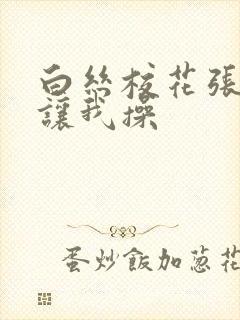 白絲校花張
讓我操
蛋炒飯加蔥花